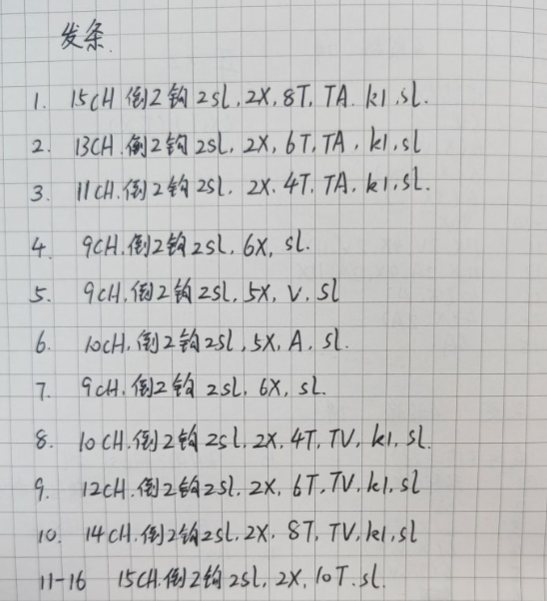 发条.
1. 15CH.倒2钩2sl,2X,8T,TA.k1,sl.
2. 13CH.倒2钩2sl,2X,6T,TA,k1,sl
3. 11CH.倒2钩2sl.2X.4T.TA.k1,sl.
4. 9CH.倒2钩2sl.6X,sl.
5. 9CH.倒2钩2sl,5X,V,sl
6. 10CH.倒2钩2sl,5X,A,sl.
7. 9CH.倒2钩2sl.6X,sl.
8. 10CH.倒2钩2sl.2X.4T,TV,k1,sl.
9. 12CH.倒2钩2sl.2X,6T,TV,k1,sl
10. 14CH.倒2钩2sl.2X.8T,TV,k1,sl
11-16 15CH.倒2钩2sl,2X,10T.sl.